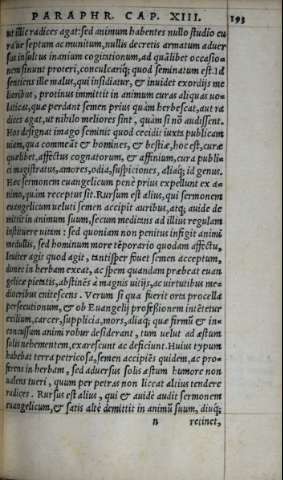 PARAPHR. CAP. XIII. 193
ut illic radices agat: sed animum habentes nullo studio cu
ræue septum ac munitum, nullis decretis armatum aduer
sus insultus inanium cogitationum, ad quālibet occasio-
nem sinunt proteri, conculcariq; quod seminatum est. Id
sentiens ille malus, qui insidiatur, & inuidet exordijs me
lioribus, protinus immittit in animum curas aliquas uo-
laticas, quæ perdant semen prius quàm herbescat, aut ra
dices agat, ut nihilo meliores sint, quàm si nō audissent.
Hos designat imago seminis quod cecidit iuxta publicam
uiam, qua commeāt & homines, & bestiæ, hoc est, curæ
quælibet, affectus cognatorum, & affinium, cura publi-
ci magistratus, amores, odia, suspiciones, aliaq; id genus.
Hæc sermonem euangelicum penè prius expellunt ex a-
nimo, quàm receptus sit. Rursum est alius, qui sermonem
euangelicum ueluti semen accipit auribus, atq; auide de-
mittit in animum suum, secum meditans ad illius regulam
instituere uitam: sed quoniam non penitus infigit animi
medullis, sed hominum more tēporario quodam affectu,
leuiter agit quod agit, tantisper fouet semen acceptum,
donec in herbam exeat, ac spem quandam præbeat euan
gelicæ pietatis, abstinēs à magnis uicijs, ac uirtutibus me-
diocribus enitescens. Verum si qua fuerit orta procella
persecutionum, & ob Euangelij professionem intētetur
exilium, carcer, supplicia, mors, aliaq; quæ firmū & in-
concussam animi robur desiderant, tum uelut ad æstum
solis uehementem, exarescunt ac deficiunt. Huius typum
habebat terra petricosa, semen accipiēs quidem, ac pro-
ferens in herbam, sed aduersus solis æstum humore non
ualens tueri, quum per petras non liceat altius tendere
radices. Rursus est alius, qui & auidè audit sermonem
euangelicum, & satis altè demittit in animū suum, diuq;
n retinet,